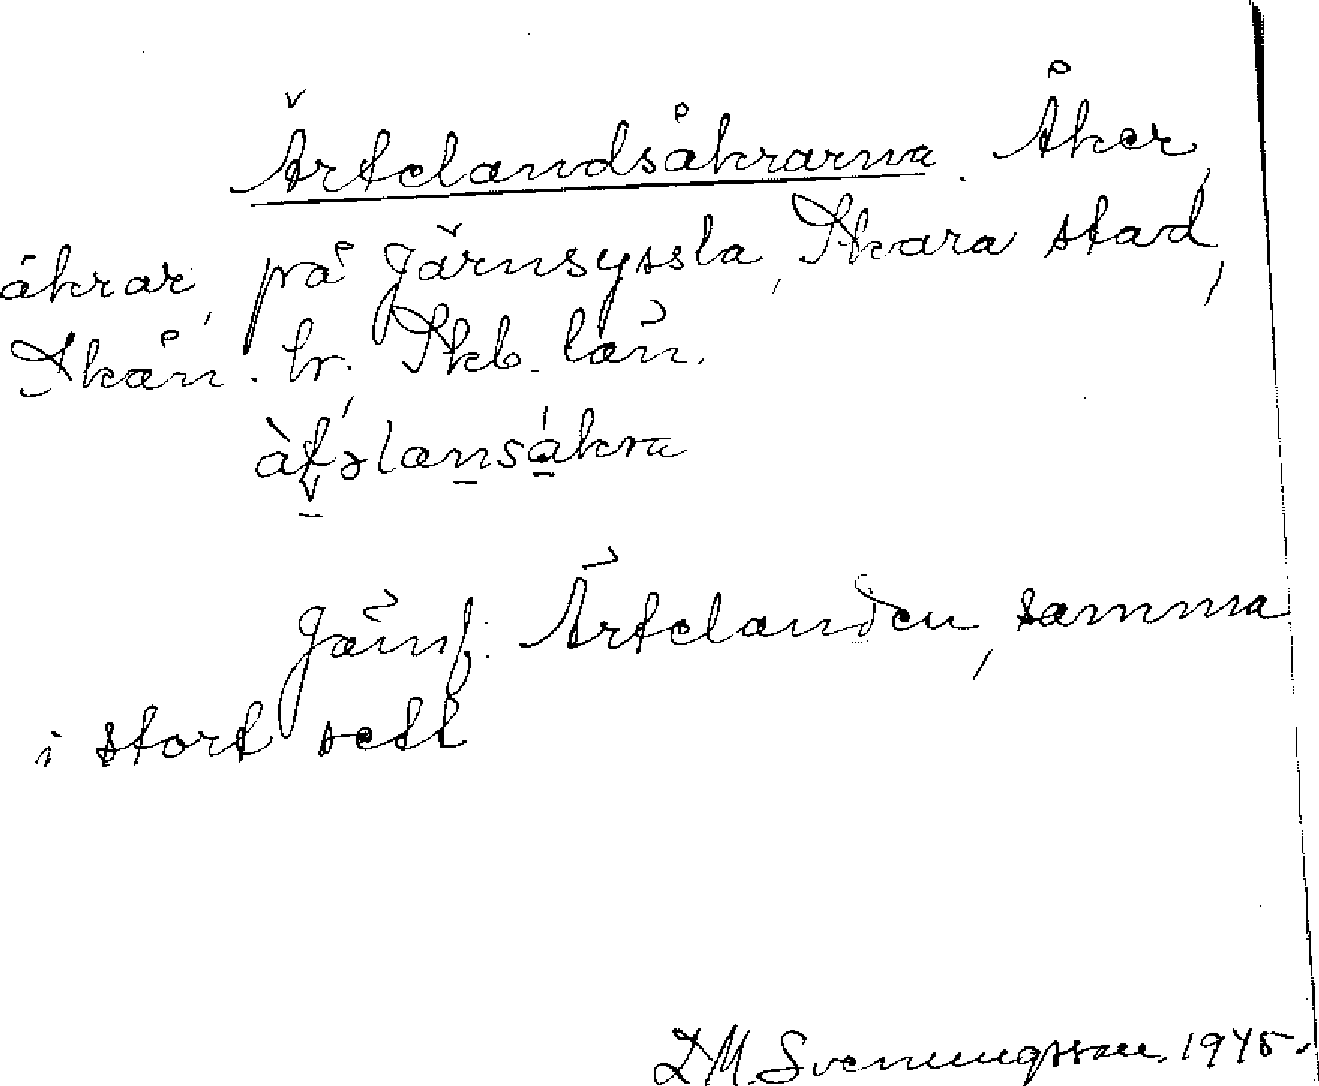 Ärtelandsåkrarna. Åker,
åkrar, på Järnsyssla, Skara stad,
Skån. hr. Skb. län.
Jämf. Ärtelanden, samma
i stort sett
D.M. Svenungsson 1945.